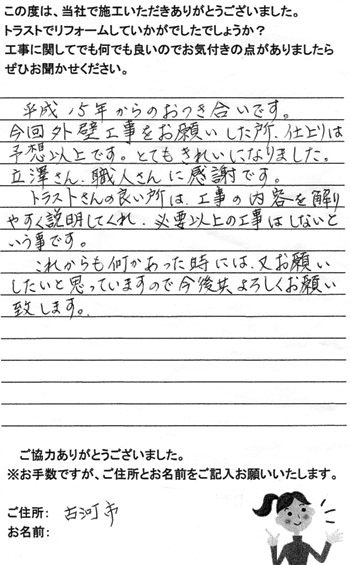 この度は、当社で施工いただきありがとうございました。
トラストでリフォームしていかがでしたでしょうか？
工事に関してでも何でも良いのでお気付きの点がありましたら
ぜひお聞かせください。
平成15年からのおつき合いです。
今回外壁工事をお願いした所、仕上りは
予想以上です。とてもきれいになりました。
立澤さん、職人さんに感謝です。
トラストさんの良い所は、工事の内容を解り
やすく説明してくれ、必要以上の工事はしないと
いう事です。
これからも何かあった時には、又お願い
したいと思っていますので今後共よろしくお願い
致します。
ご協力ありがとうございました。
※お手数ですが、ご住所とお名前をご記入お願いいたします。
ご住所: 古河市
お名前: